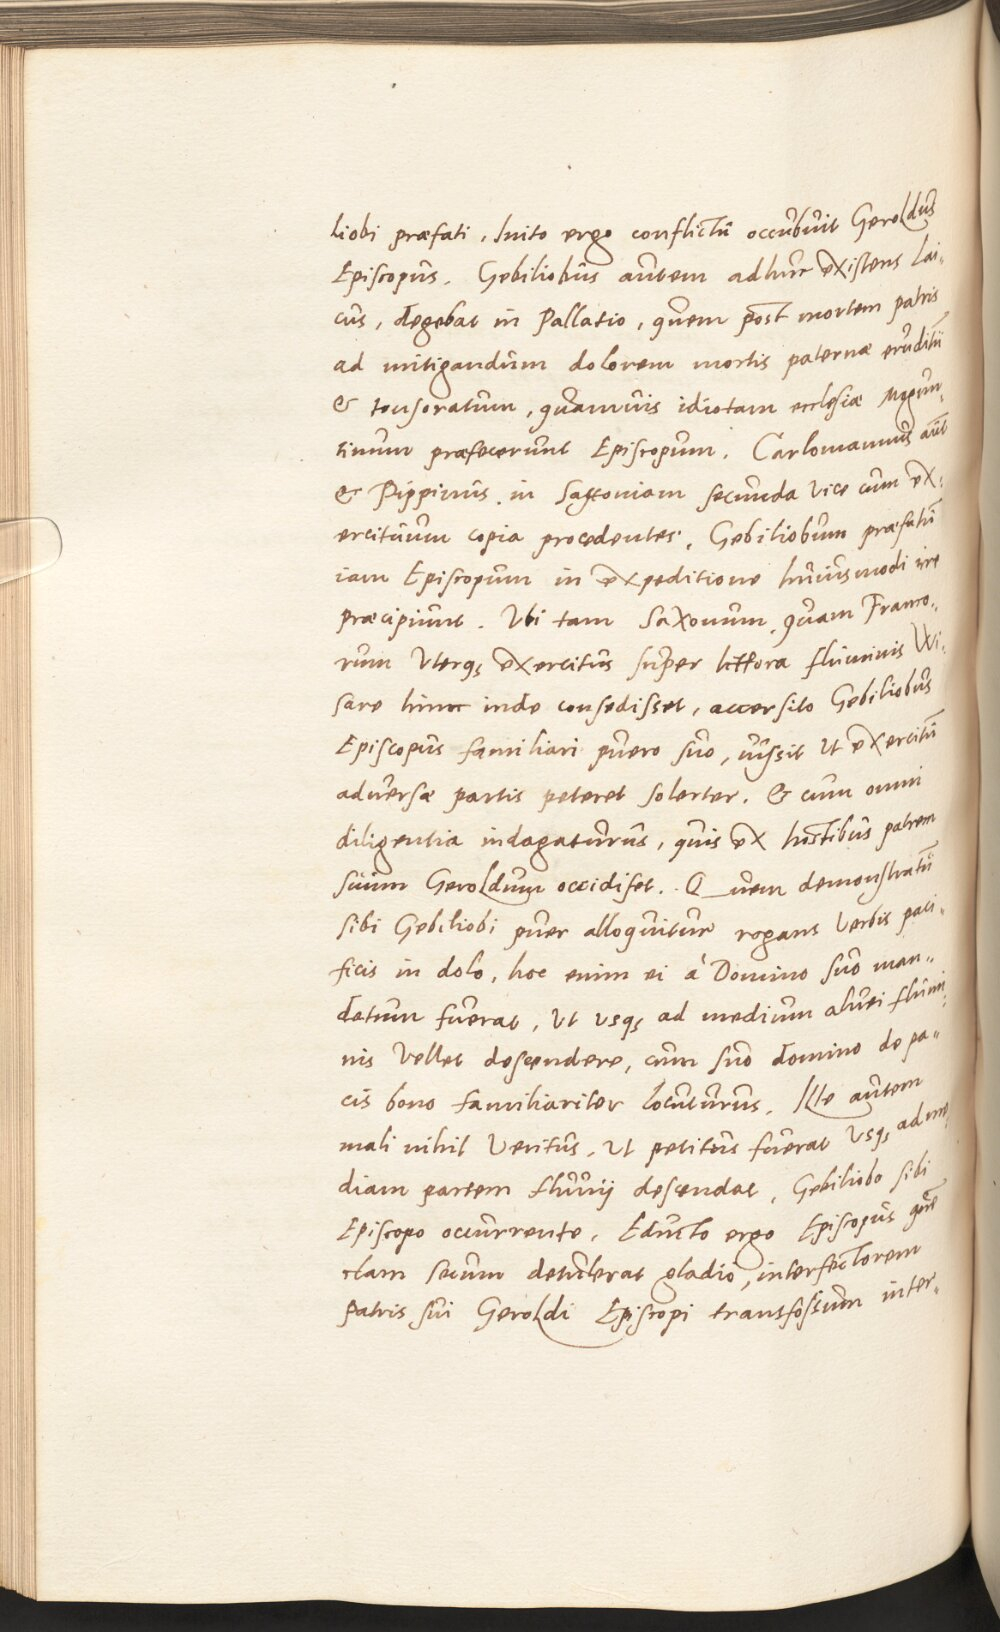 liobi præfati, Inito ergo conflictū occubuit Geroldus
Episcopus. Gebiliobus autem adhuc existens lai-
cus, degebat in Pallatio, quem post mortem patris
ad mitigandum dolorem mortis paternæ eruditū
& tonsoratum, quamuis idiotam ecclesiæ Mgun-
tinum præfecerunt Episcopum. Carlomannus aūt
& Pippinus in Saxoniam secunda vice cum ex-
ercituum copia procedentes, Gebiliobum præfatū
iam Episcopum in expeditione huiusmodi ire
præcipiunt. Vbi tam Saxonum quam Franco-
rum vterq; exercitus super littora fluminis Wi-
sare hinc inde consedisset, accersito Gebiliobus
Episcopus familiari puero suo, iussit vt exercitū
aduersæ partis peteret solerter. & cum omni
diligentia indagaturus, quis ex hostibus patrem
suum Geroldum occidiset. Quem demonstratū
sibi Gebiliobi puer alloquitur rogans verbis paci-
ficis in dolo, hoc enim ei à Domino suo man-
datum fuerat, vt vsq; ad medium aluei flumi-
nis vellet descendere, cum suo domino de pa-
cis bono familiariter locuturus. Ille autem
mali nihil veritus, vt petitus fuerat vsq; ad me-
diam partem fluuij descendat, Gebiliobo sibi
Episcopo occurrente. Educto ergo Episcopus quē
clam secum detulerat gladio, interfectorem
patris sui Geroldi Episcopi transfossum inter-